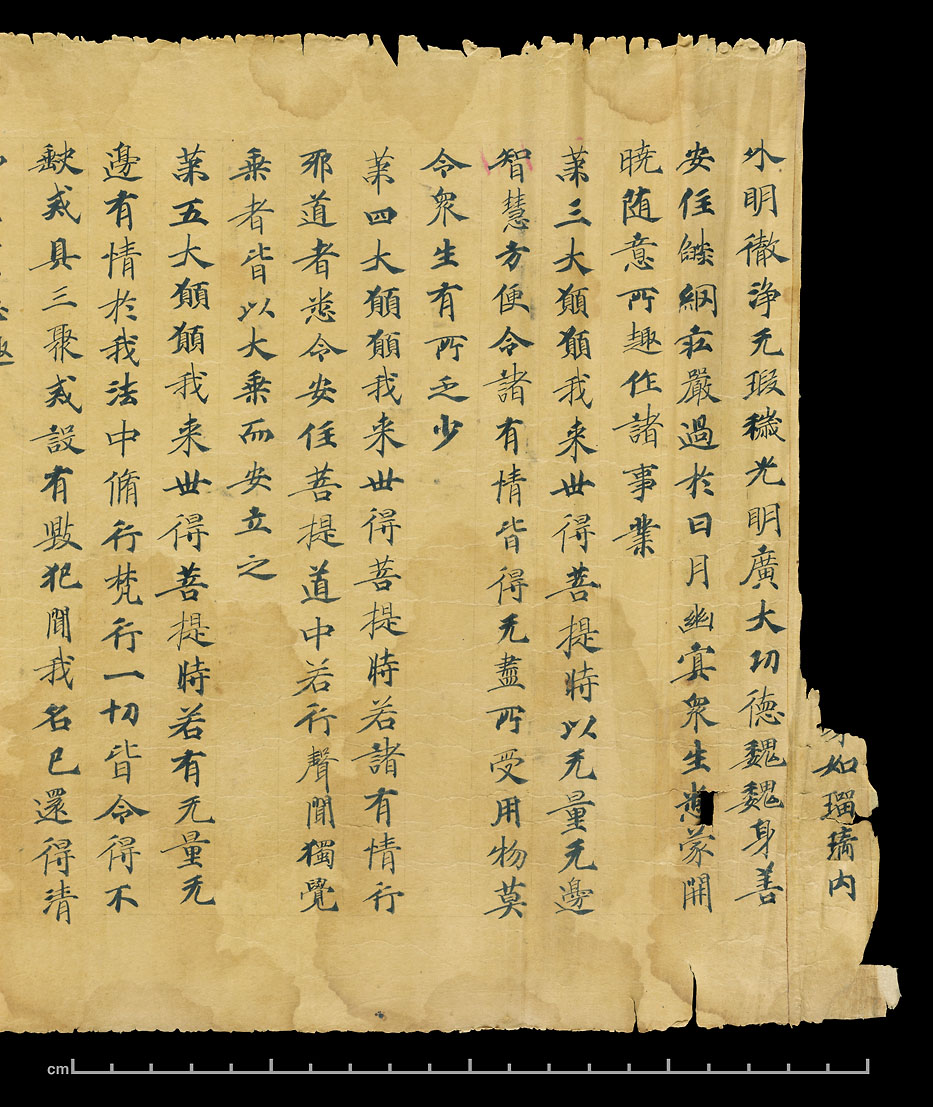 如瑠璃内
外明徹淨无瑕穢光明廣大功德魏魏身善
安住𦦨網庄嚴過於日月幽冥衆生悉蒙開
曉随意所趣作諸事業
苐三大願願我来世得菩提時以无量无邊
智慧方便令諸有情皆得无盡所受用物莫
令衆生有所乏少
苐四大願願我来世得菩提時若諸有情行
邪道者悉令安住菩提道中若行聲聞獨覺
乘者皆以大乘而安立之
苐五大願願我来世得菩提時若有无量无
邊有情於我法中脩行梵行一切皆令得不
缺戒具三聚戒設有毀犯聞我名已還得清
趣